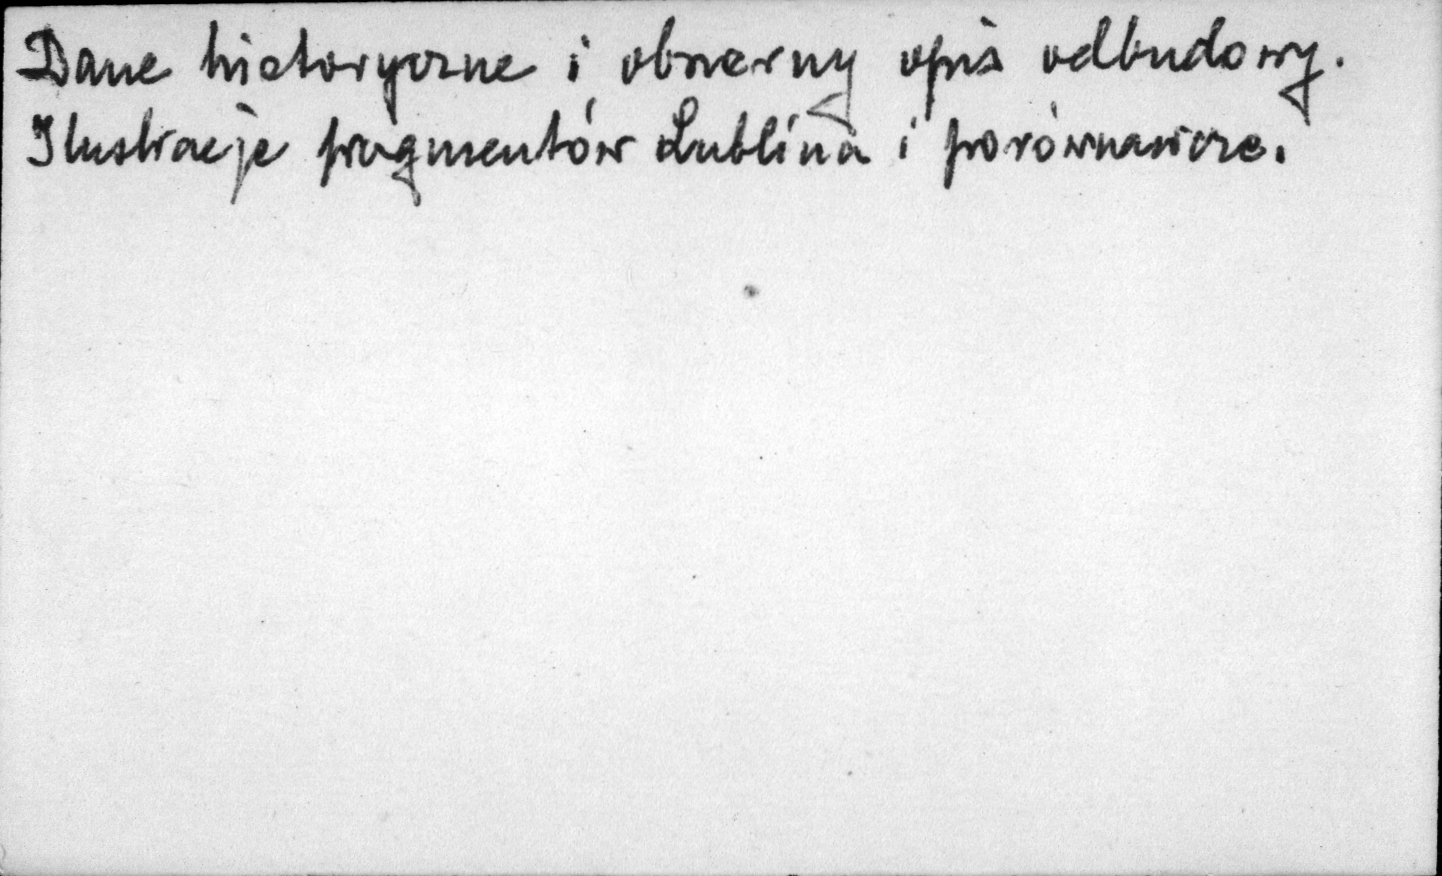 Dane historyczne i obszerny opis odbudowy.
Ilustracje fragmentów Lublina i porównawcze.